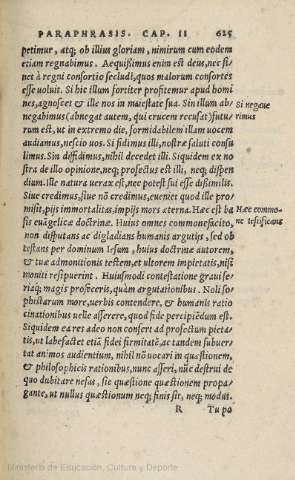 PARAPHRASIS. CAP. II 625
petimur, atq; ob illius gloriam, nimirum cum eodem
etiam regnabimus. Aequißimus enim est deus, nec si-
net à regni consortio secludi, quos malorum consortes
esse uoluit. Si hic illum fortiter apud homi
nes, agnoscet & ille nos in maiestate sua. Sin illum ab/
negabimus (abnegat autem, qui crucem recusat) futu/
rum est, ut in extremo die, formidabilem illam uocem
audiamus, nescio uos. Si fidimus illi, nostræ saluti consu
limus. Sin diffidimus, nihil decedet illi. Siquidem ex no
stra de illo opinione, neq; profectus est illi, neq; dispen
dium. Ille natura uerax est, nec potest sui esse dißimilis.
Siue credimus, siue nō credimus, eueniet quod ille pro/
misit, pijs immortalitas, impijs mors æterna. Hæc est ba
sis euāgelicæ doctrinæ. Huius omnes commonefacito,
non disputans ac digladians humanis argutijs, sed ob
testans per dominum Iesum, huius doctrinæ autorem,
& tuæ admonitionis testem, ac ultorem impietatis, nisi
moniti resipuerint. Huiusmodi contestatione graui se/
riaq; magis profeceris, quàm argutationibus. Noli so/
phistarum more, uerbis contendere, & humanis ratio
cinationibus uelle asserere, quod fide percipiēdum est.
Siquidem ea res adeo non confert ad profectum pieta/
tis, ut labefactet etiā fidei firmitatē, ac tandem subuer/
tat animos audientium, nihil nō uocari in quæstionem,
& philosophicis rationibus, nunc asseri, nūc destrui de
quo dubitare nefas, sic quæstione quæstionem propa/
gante, ut nullus quæstionum neq; finis sit, neq; modus.
R Tu po
Si negaue
rimus
Hæc commo-
ne testificans
Ministerio de Educación, Cultura y Deporte